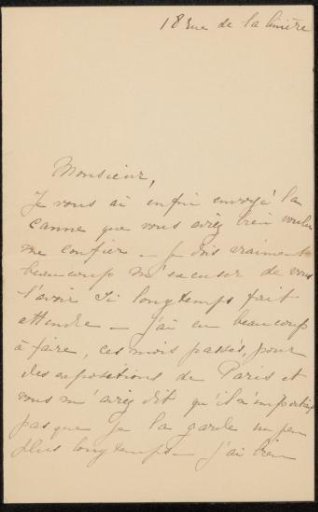 18 rue de la
Monsieur,
Je vous ai enfin envoyé la
canne que vous aviez bien voulu
me confier — je dois vraiment
beaucoup m'excuser de vous
l'avoir si longtemps fait
attendre — j'ai eu beaucoup
à faire, ces mois passés, pour
des expositions de Paris et
vous m'aviez dit qu'il n'importait
pas que je la garde un peu
plus longtemps — j'ai bien